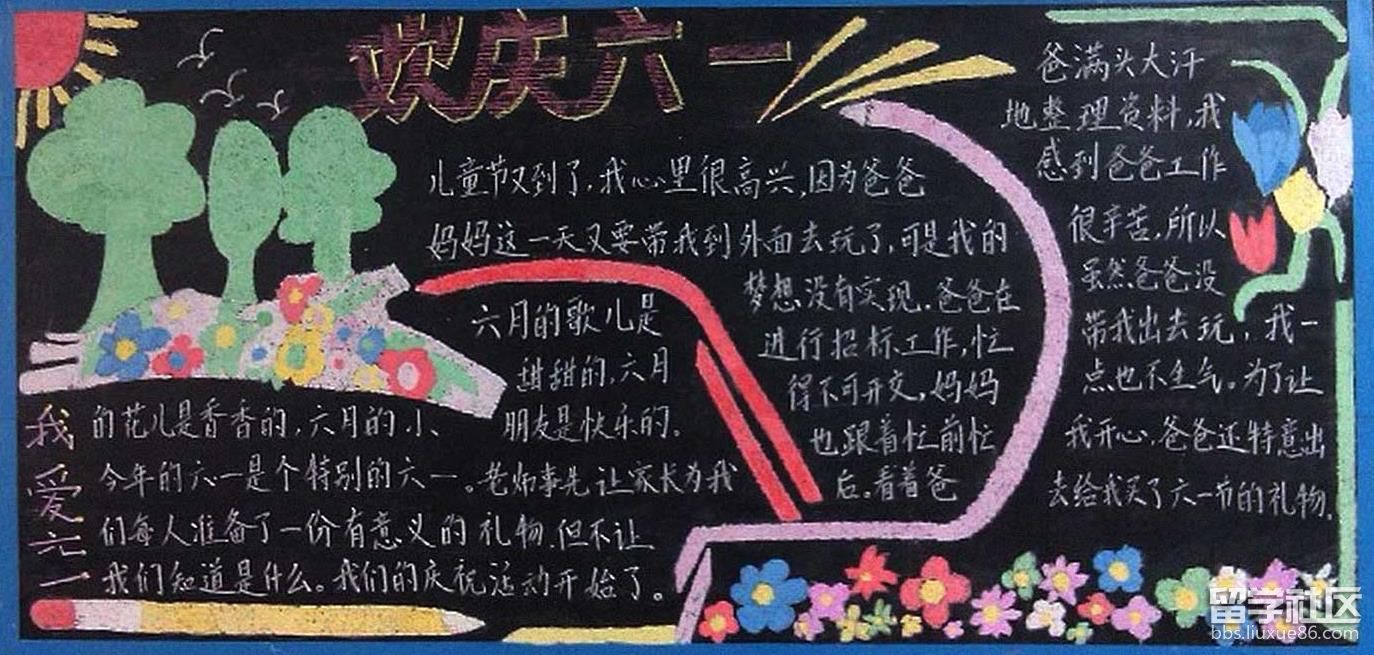 欢庆六一
儿童节又到了，我心里很高兴，因为爸爸
妈妈这一天又要带我到外面去玩了，可是我的
梦想没有实现。爸爸在
进行招标工作，忙
得不可开交，妈妈
也跟着忙前忙
后。看着爸
爸满头大汗
地整理资料，我
感到爸爸工作
很辛苦，所以
虽然爸爸没
带我出去玩，我一
点也不生气。为了让
我开心，爸爸还特意出
去给我买了六一节的礼物。
我爱六一
六月的歌儿是
甜甜的，六月
的花儿是香香的，六月的小
朋友是快乐的。
今年的六一是个特别的六一。老师事先让家长为我
们每人准备了一份有意义的礼物，但不让
我们知道是什么。我们的庆祝活动开始了。
留学社区
bbs.liuxue86.com